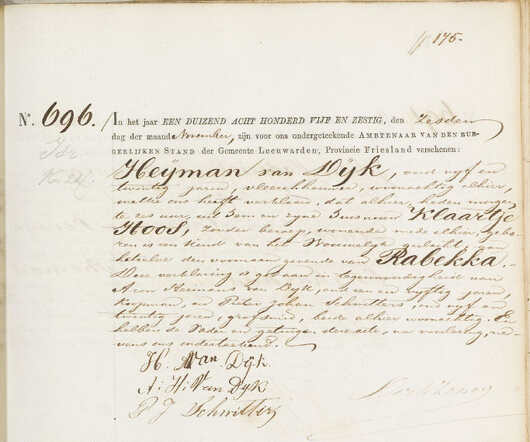 175.
N°. 696. In het jaar EEN DUIZEND ACHT HONDERD VIJF EN ZESTIG, den zesden
dag der maand November, zijn voor ons ondergeteekende AMBTENAAR VAN DEN BUR-
GERLIJKEN STAND der Gemeente Leeuwarden, Provincie Friesland verschenen:
Heÿman van Dÿk, oud vyf en
twintig jaren, vleeschhouwer, woonachtig alhier,
welke ons heeft verklaard, dat alhier, heden morgen
te zes uur, uit hem en zyne huisvrouw Klaartje
Hoos, zonder beroep, wonende mede alhier, gebo-
ren is een kind van het Vrouwelyk geslacht, aan
hetwelke den voornaam gevende van Rabekka.
Deze verklaring is gedaan in tegenwoordigheid van
van Dyk, oud vyftig jaren,
koopman, en Pieter Johan Schuitters, oud vyf en
twintig jaren, beide alhier woonachtig. En
hebben de Vader en getuigen deze akte, na voorlezing, ne-
vens ons onderteekend.
H. van Dÿk.
A. H. Van Dÿk
P J Schuitters